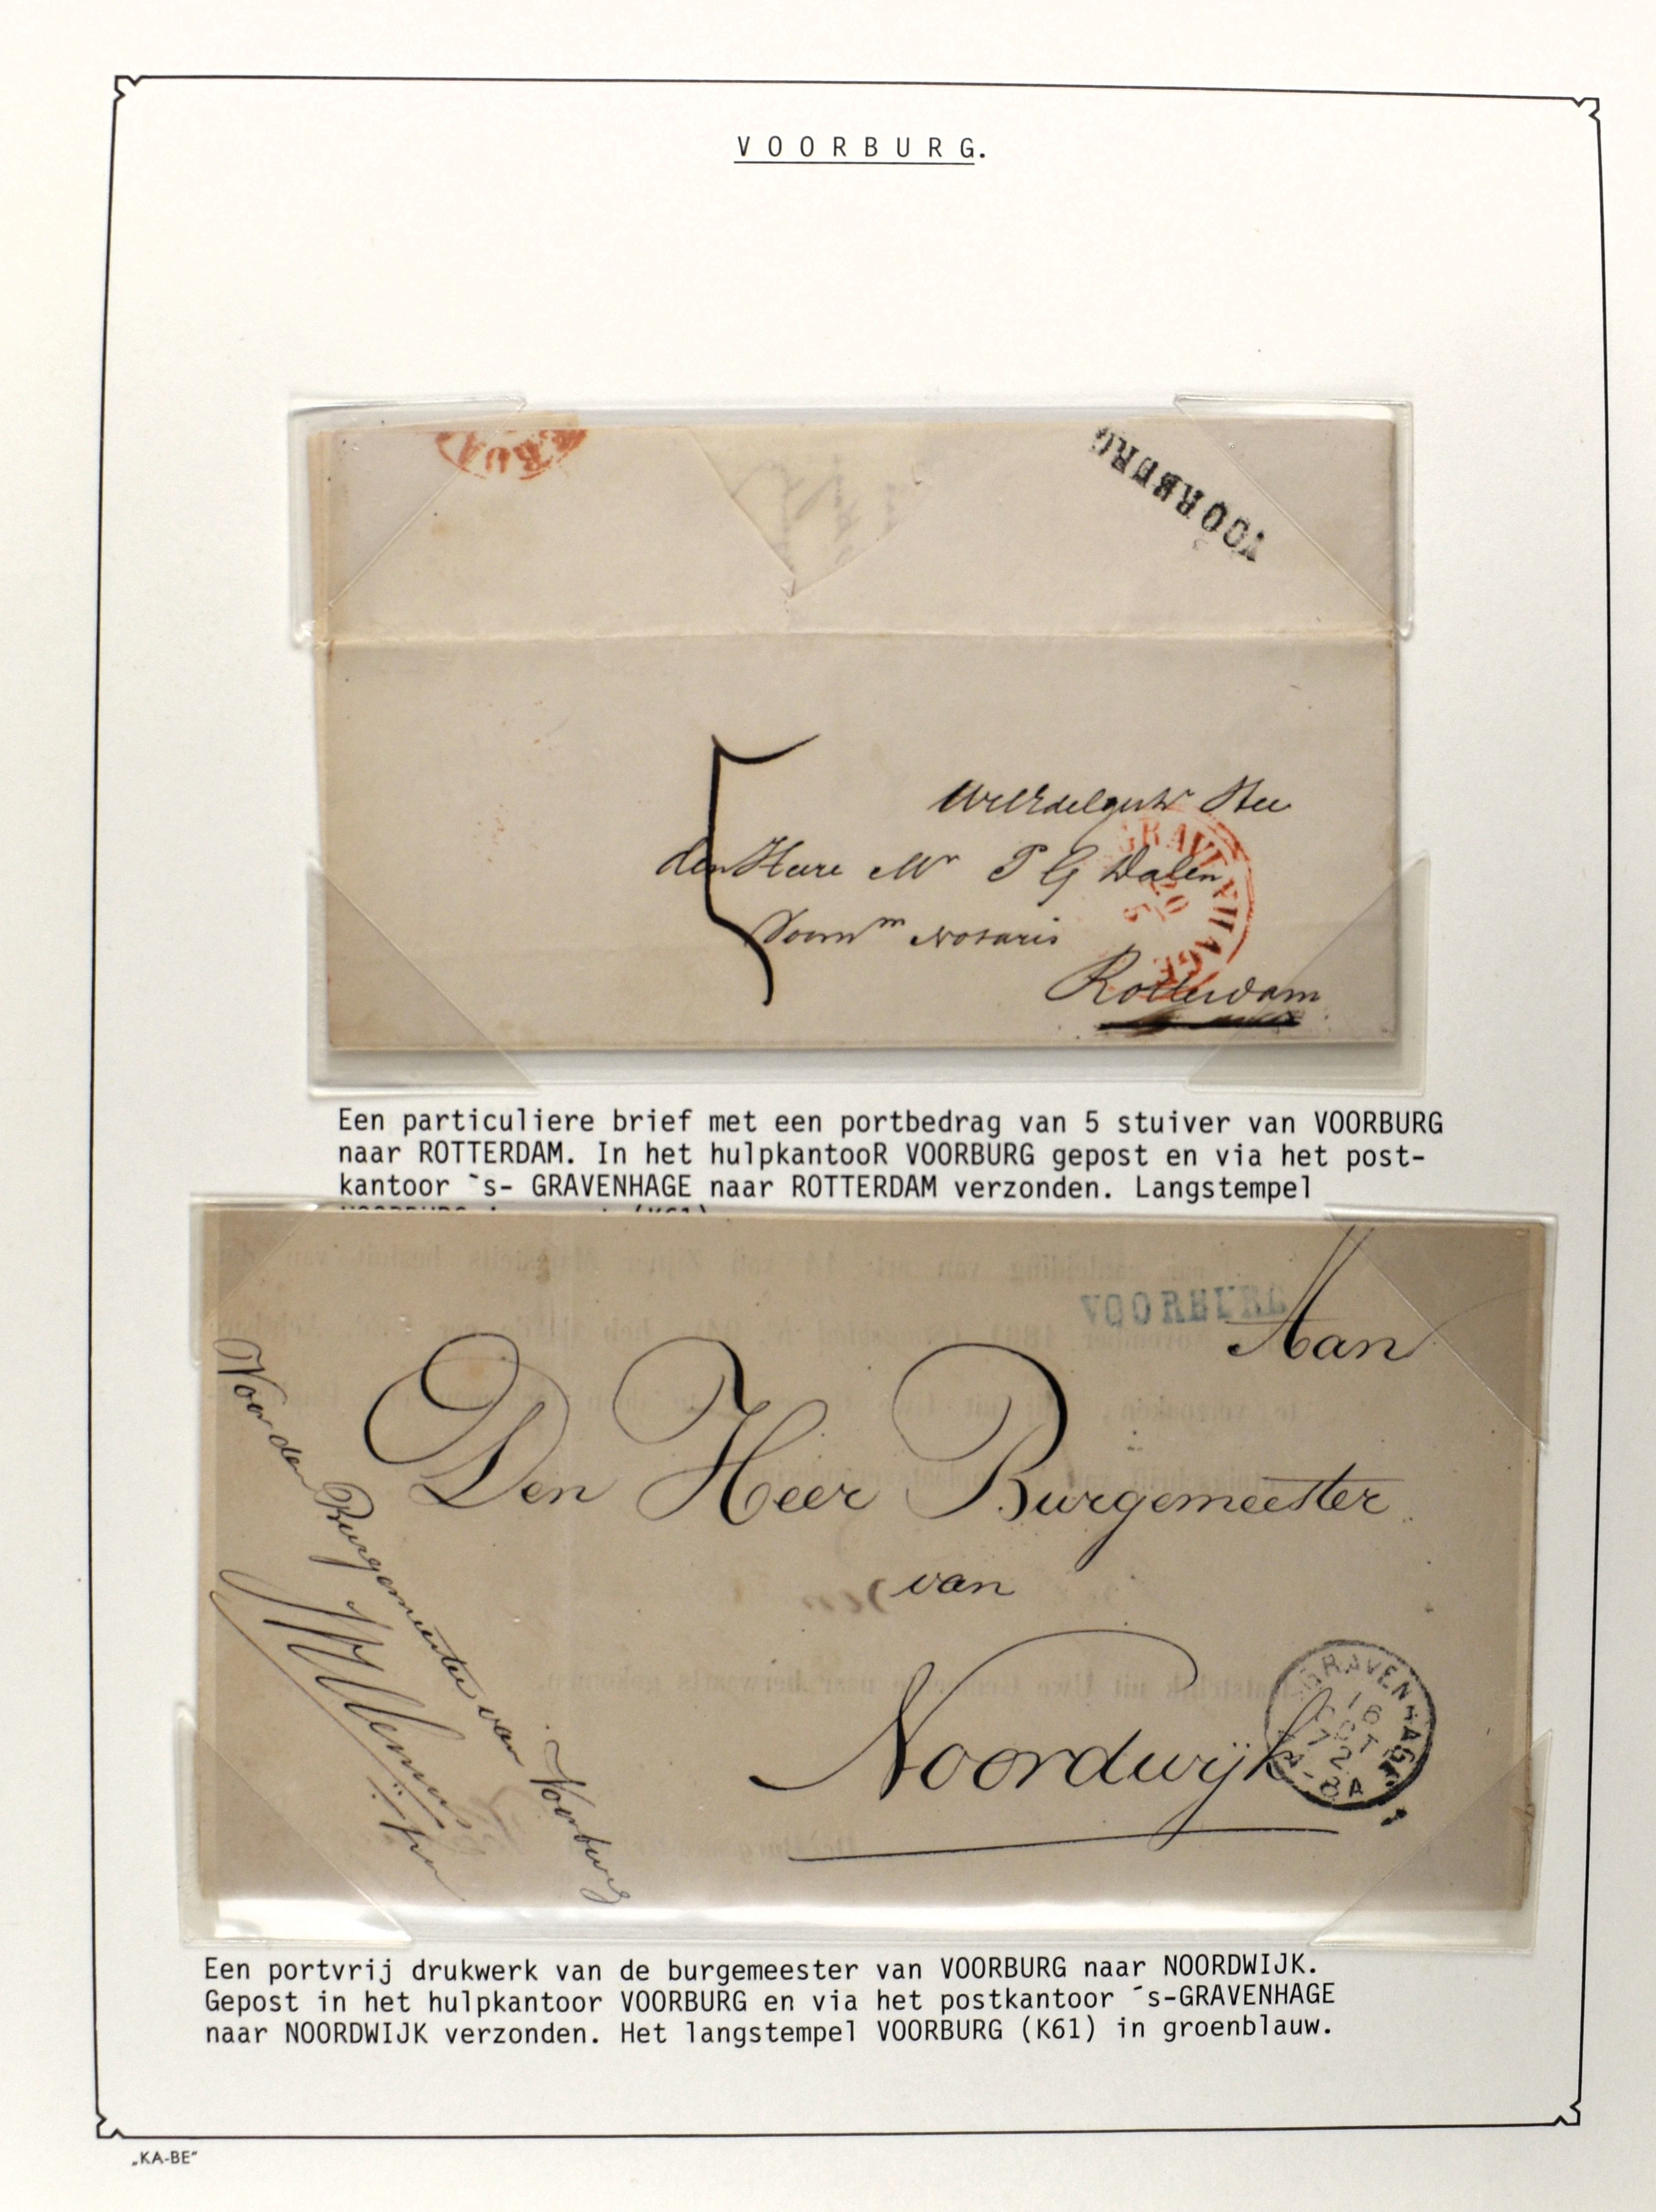 VOORBURG.
VOORBURG
WelEdelgestr Heer
GRAVENHAGE
den Heere Mr P G Dalen
20
5
Notaris
Rotterdam
5
Een particuliere brief met een portbedrag van 5 stuiver van VOORBURG
naar ROTTERDAM. In het hulpkantooR VOORBURG gepost en via het post-
kantoor `s- GRAVENHAGE naar ROTTERDAM verzonden. Langstempel
VOORBURG
Aan
Den Heer Burgemeester
van
Noordwijk
GRAVENHAGE
16
OCT
72
-8A
Voor den Burgemeester van Voorburg
Een portvrij drukwerk van de burgemeester van VOORBURG naar NOORDWIJK.
Gepost in het hulpkantoor VOORBURG en via het postkantoor ´s-GRAVENHAGE
naar NOORDWIJK verzonden. Het langstempel VOORBURG (K61) in groenblauw.
„KA-BE"